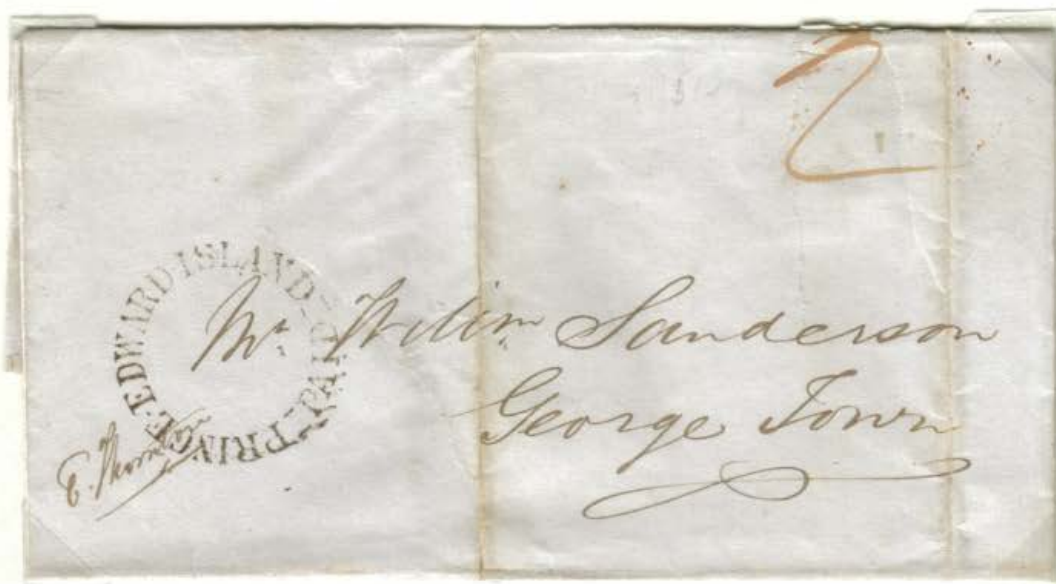 2
PRINCE·EDWARD ISLAND-PAID-
Mr. Willim. Sanderson
George Town
E.